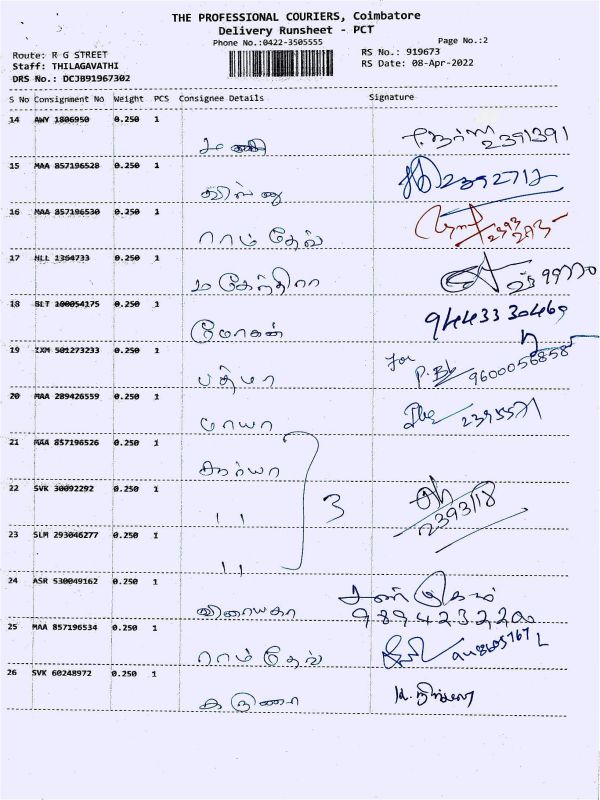 THE PROFESSIONAL COURIERS, Coimbatore
Delivery Runsheet - PCT
Phone No.:0422-3505555
Page No.:2
Route: R G STREET
RS No.: 919673
Staff: THILAGAVATHI
RS Date: 08-Apr-2022
DRS No.: DCJB91967302
S No Consignment No Weight PCS Consignee Details Signature
14 AWY 1806950 0.250 1
மணி 2391391
15 MAA 857196528 0.250 1
விஷ்ணு 2392712
16 MAA 857196530 0.250 1
ராம் தேவ் 2393
17 HLL 1364733 0.250 1
மகேந்திரா
18 BLT 100054175 0.250 1
மோகன் 9443330469
19 IXM 501273233 0.250 1
பத்மா For 9600056858
20 MAA 289426559 0.250 1
மாயா 2395571
21 MAA 857196526 0.250 1
சூர்யா
22 SVK 30092292 0.250 1
11 3 2393118
23 SLM 293046277 0.250 1
11
24 ASR 530049162 0.250 1
விநாயகா
25 MAA 857196534 0.250 1
ராம் தேவ்
26 SVK 60248972 0.250 1
கருணை